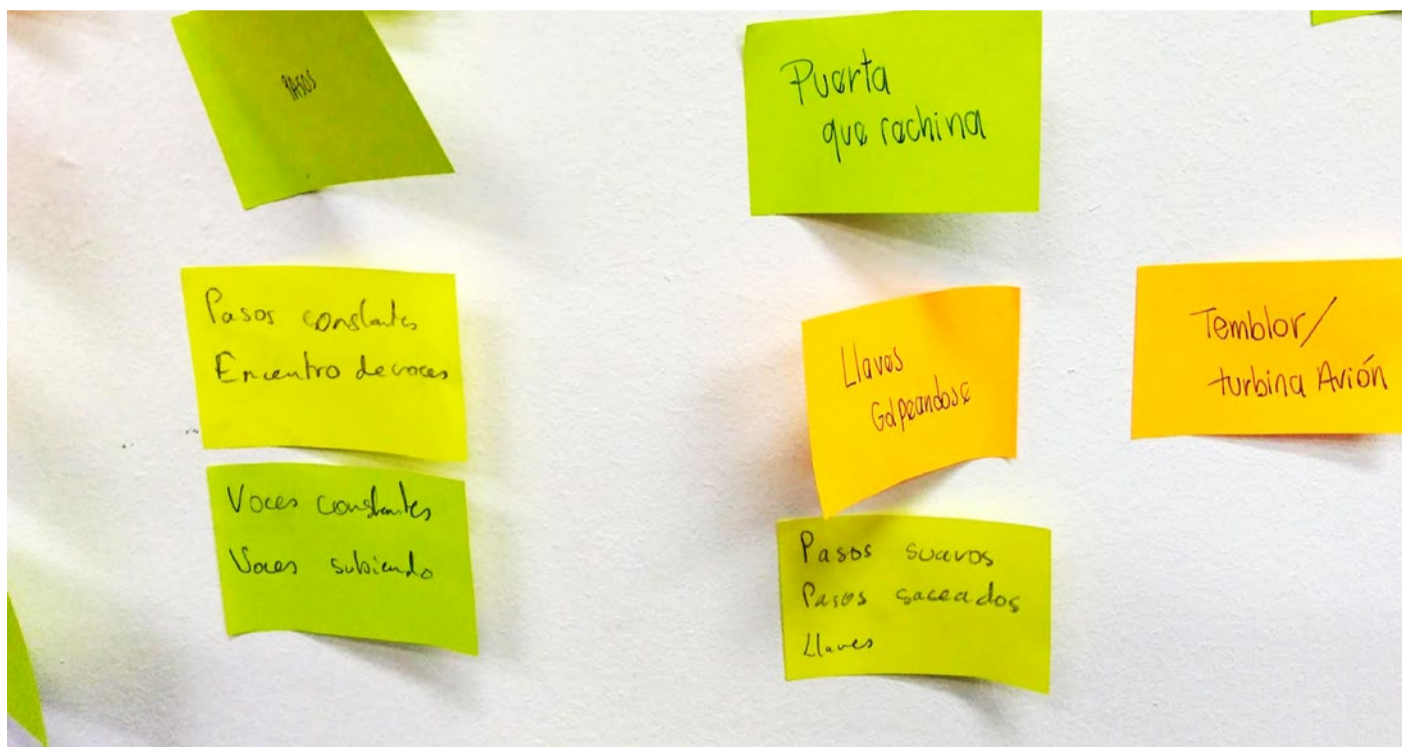 PASOS
Puerta
que rechina
Pasos constantes
Encuentro de voces
Llaves
Golpeandose
Temblor/
turbina Avión
Voces constantes
Voces subiendo
Pasos suaves
Pasos
Llaves